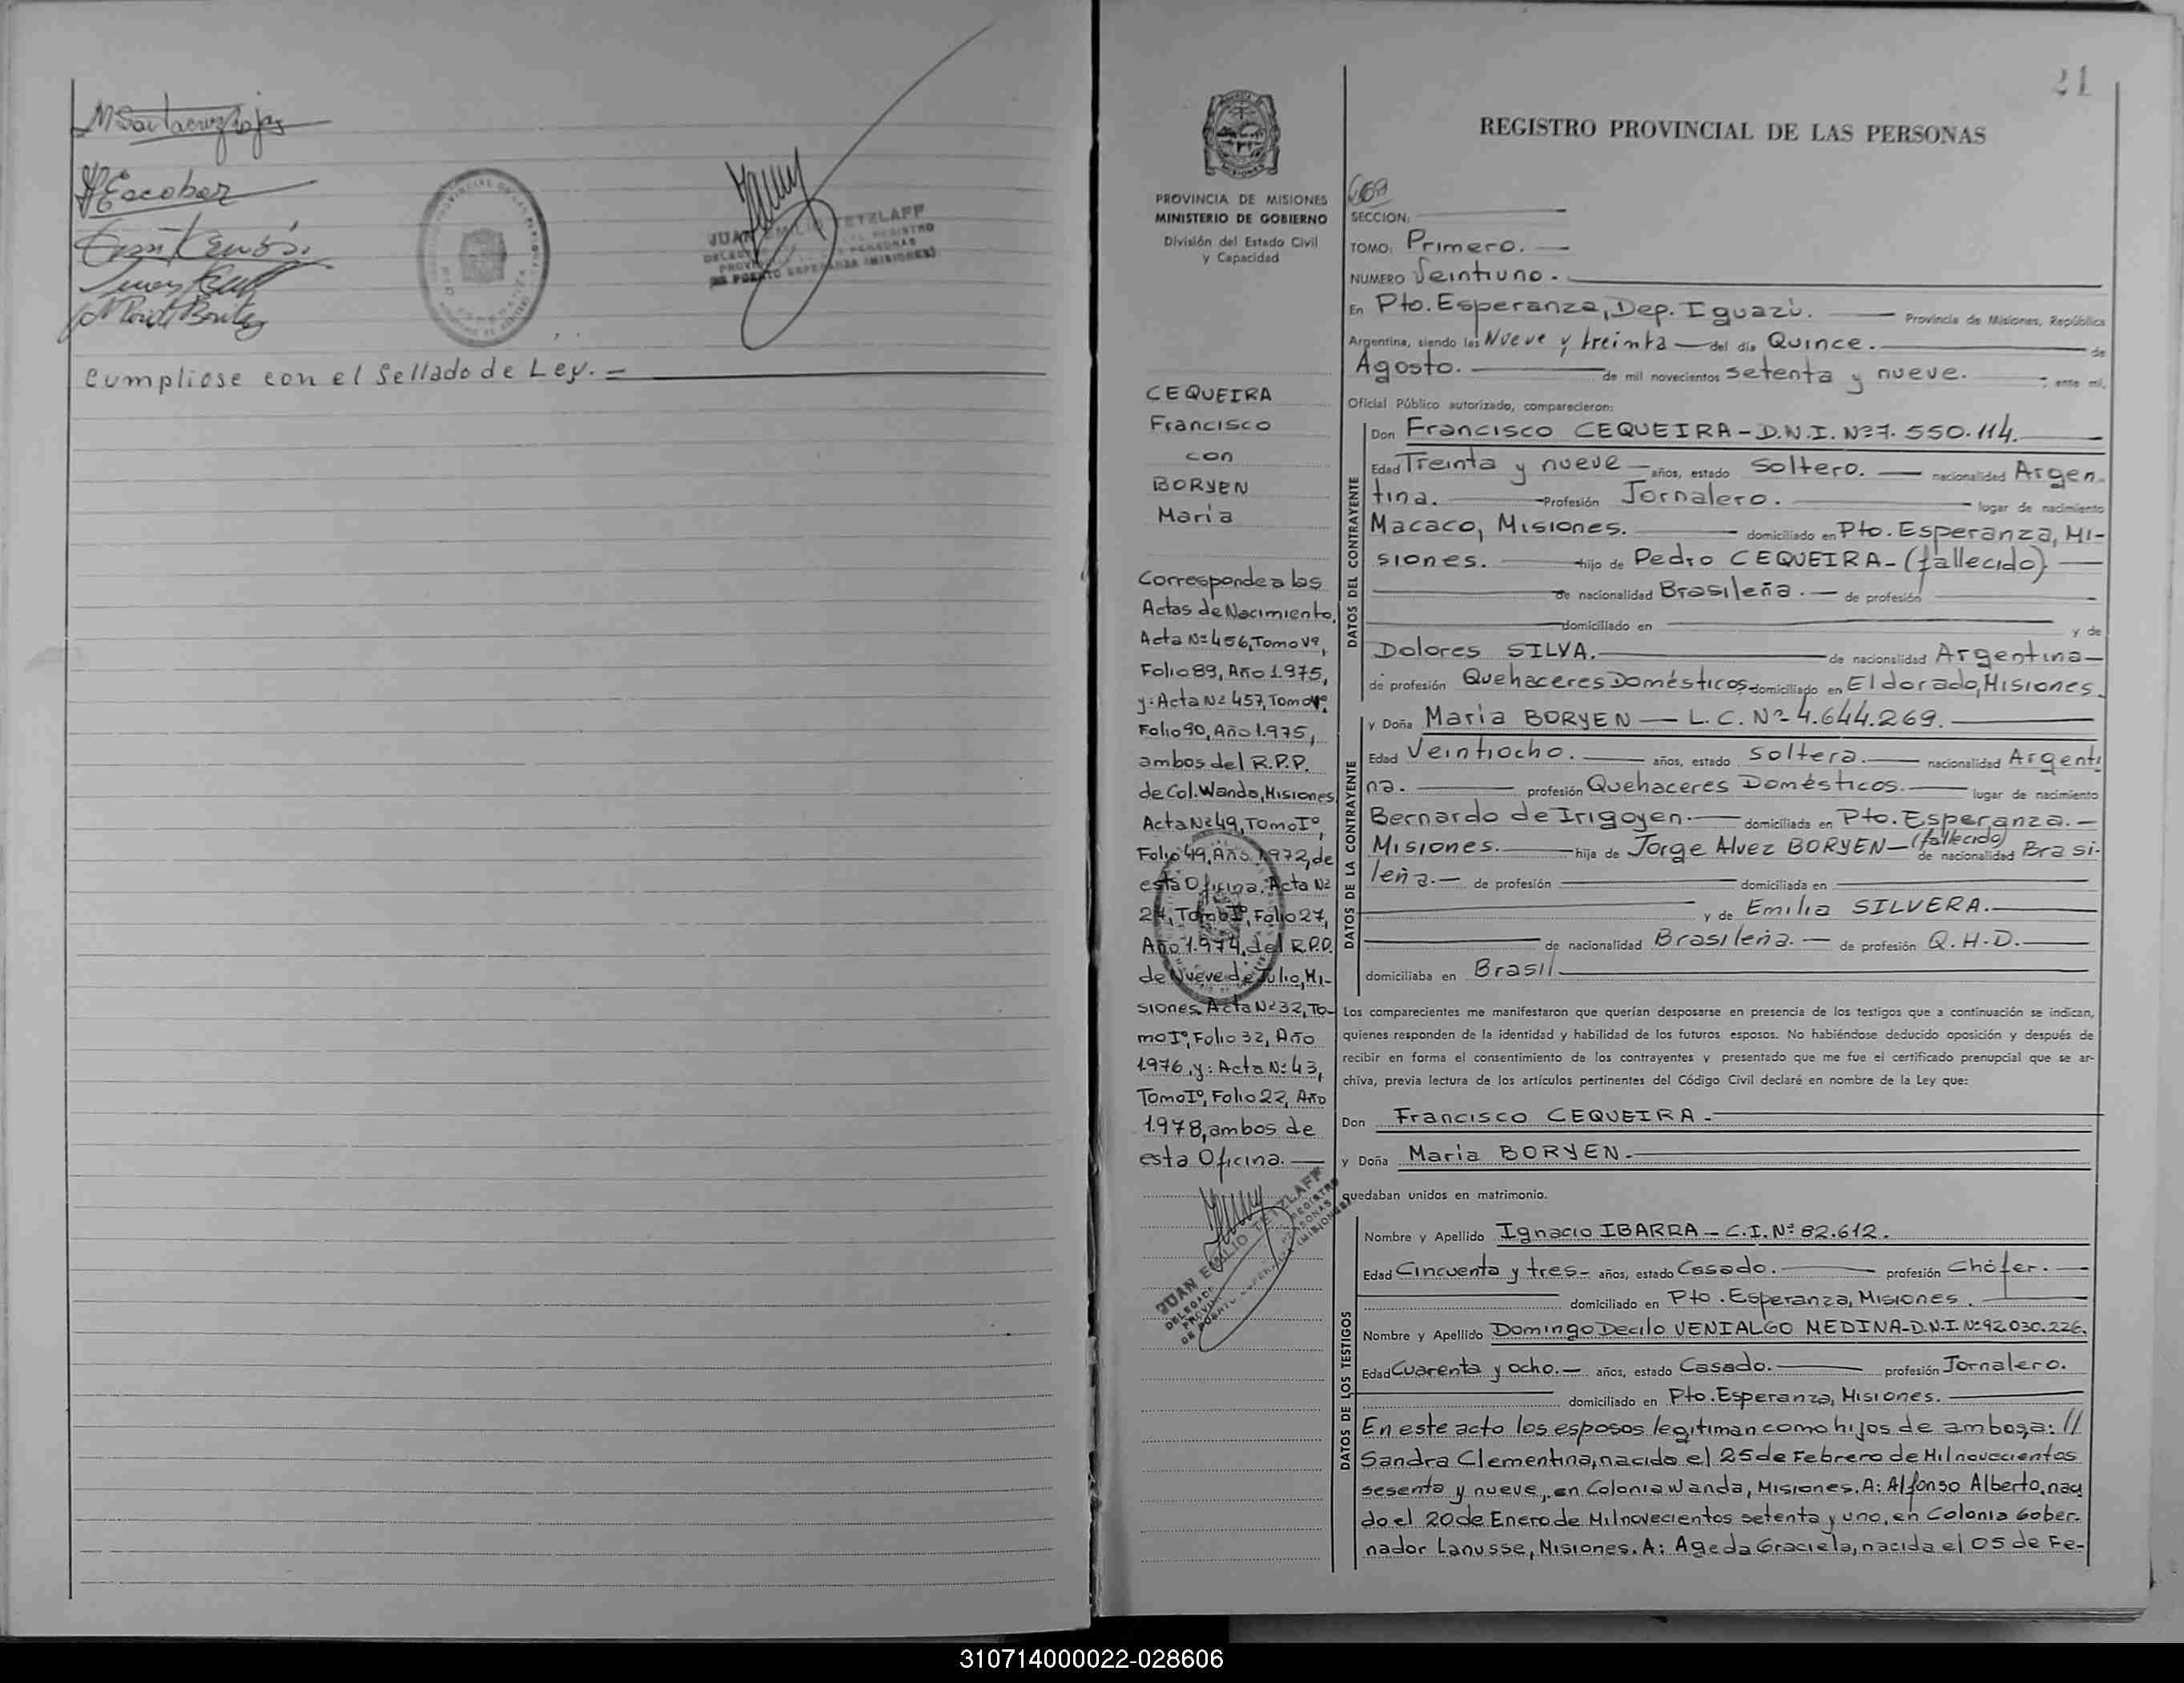 MSantacruz Rojas
HEscobar
Cumpliose con el Sellado de Ley. =
JUAN EMILIO TETZLAFF
DE PUERTO ESPERANZA (MISIONES)
21
REGISTRO PROVINCIAL DE LAS PERSONAS
PROVINCIA DE MISIONES
MINISTERIO DE GOBIERNO
División del Estado Civil
y Capacidad
CEQUEIRA
Francisco
con
BORYEN
María
Corresponde a las
Actas de Nacimiento,
Acta Nº 456, Tomo Vº,
Folio 89, Año 1.975,
y: Acta Nº 457, Tomo Vº,
Folio 90, Año 1.975,
ambos del R.P.P.
de Col. Wanda, Misiones
Acta Nº 49, Tomo Iº,
Folio 49, Año 1.972, de
esta Oficina. Acta Nº
27, Tomo Iº, Folio 27,
Año 1.974, del R.P.P.
de Nueve de Julio, Mi-
siones. Acta Nº 32, To-
mo Iº, Folio 32, Año
1.976, y: Acta Nº 43,
Tomo Iº, Folio 22, Año
1.978, ambos de
esta Oficina.
JUAN EMILIO TETZLAFF
SECCION:
TOMO: Primero.
NUMERO Veintiuno.
En Pto. Esperanza, Dep. Iguazú. Provincia de Misiones, República
Argentina, siendo las Nueve y treinta del día Quince. de
Agosto. de mil novecientos setenta y nueve. ; ante mí,
Oficial Público autorizado, comparecieron:
DATOS DEL CONTRAYENTE
Don Francisco CEQUEIRA - D.N.I. Nº 7.550.114.
Edad Treinta y nueve años, estado Soltero. nacionalidad Argen-
tina. Profesión Jornalero. lugar de nacimiento
Macaco, Misiones. domiciliado en Pto. Esperanza, Mi-
siones. hijo de Pedro CEQUEIRA - (fallecido)
de nacionalidad Brasileña. de profesión
domiciliado en y de
Dolores SILVA. de nacionalidad Argentina
de profesión Quehaceres Domésticos domiciliado en Eldorado, Misiones.
DATOS DE LA CONTRAYENTE
y Doña María BORYEN - L.C. Nº 4.644.269.
Edad Veintiocho. años, estado Soltera. nacionalidad Argenti
na. profesión Quehaceres Domésticos. lugar de nacimiento
Bernardo de Irigoyen. domiciliada en Pto. Esperanza.
Misiones. hija de Jorge Alvez BORYEN (fallecido) de nacionalidad Brasi-
leña. de profesión domiciliada en
y de Emilia SILVERA.
de nacionalidad Brasileña. de profesión Q.H.D.
domiciliaba en Brasil.
Los comparecientes me manifestaron que querían desposarse en presencia de los testigos que a continuación se indican,
quienes responden de la identidad y habilidad de los futuros esposos. No habiéndose deducido oposición y después de
recibir en forma el consentimiento de los contrayentes y presentado que me fue el certificado prenupcial que se ar-
chiva, previa lectura de los artículos pertinentes del Código Civil declaré en nombre de la Ley que:
Don Francisco CEQUEIRA -
y Doña María BORYEN.
quedaban unidos en matrimonio.
DATOS DE LOS TESTIGOS
Nombre y Apellido Ignacio IBARRA - C.I. Nº 82.612.
Edad Cincuenta y tres - años, estado Casado. profesión Chófer.
domiciliado en Pto. Esperanza, Misiones.
Nombre y Apellido Domingo Decilo VENIALGO MEDINA - D.N.I. Nº 92.030.226.
Edad Cuarenta y ocho. años, estado Casado. profesión Jornalero.
domiciliado en Pto. Esperanza, Misiones.
En este acto los esposos legitiman como hijos de ambos, a: //
Sandra Clementina, nacida el 25 de Febrero de Mil novecientos
sesenta y nueve, en Colonia Wanda, Misiones. A: Alfonso Alberto, naci
do el 20 de Enero de Mil novecientos setenta y uno, en Colonia Gober-
nador Lanusse, Misiones. A: Ageda Graciela, nacida el 05 de Fe-
310714000022-028606